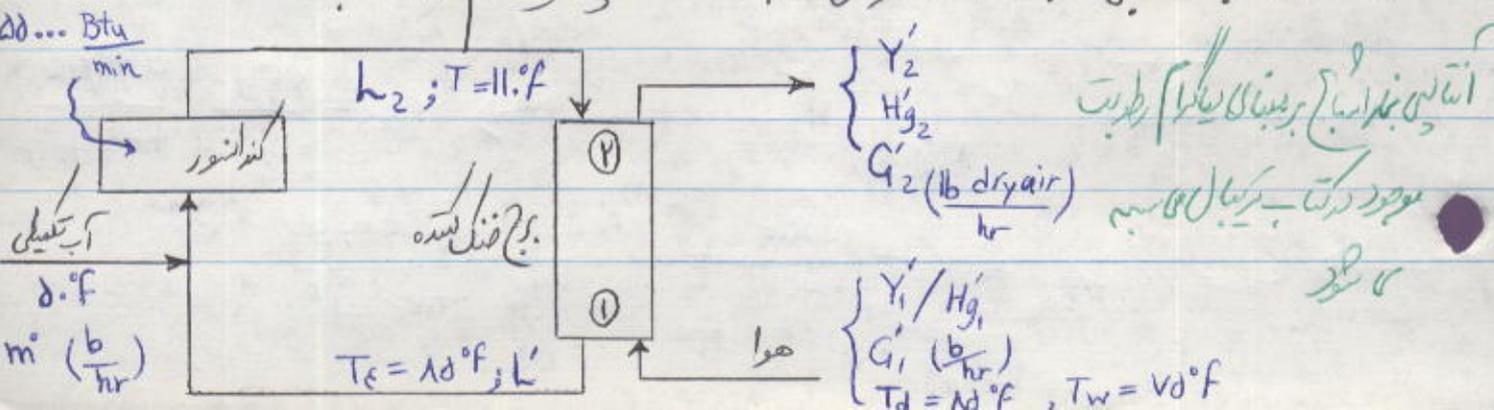 ۵۵۰۰۰ Btu/min
L₂ ; T = ۱۱۰°f
کندانسور
آب تکمیلی
۵۰°f
m° (b/hr)
برج خنک کننده
②
①
T = ۸۵°f ; L'
هوا
Y'₂
H'g₂
G'₂ (lb dry air/hr)
Y'₁ / H'g₁
G'₁ (b/hr)
Td = ۸۵°f , Tw = ۷۵°f
آنتالپی بخار اشباع بر مبنای دیاگرام رطوبت
موجود در کتاب تریبال
می شود